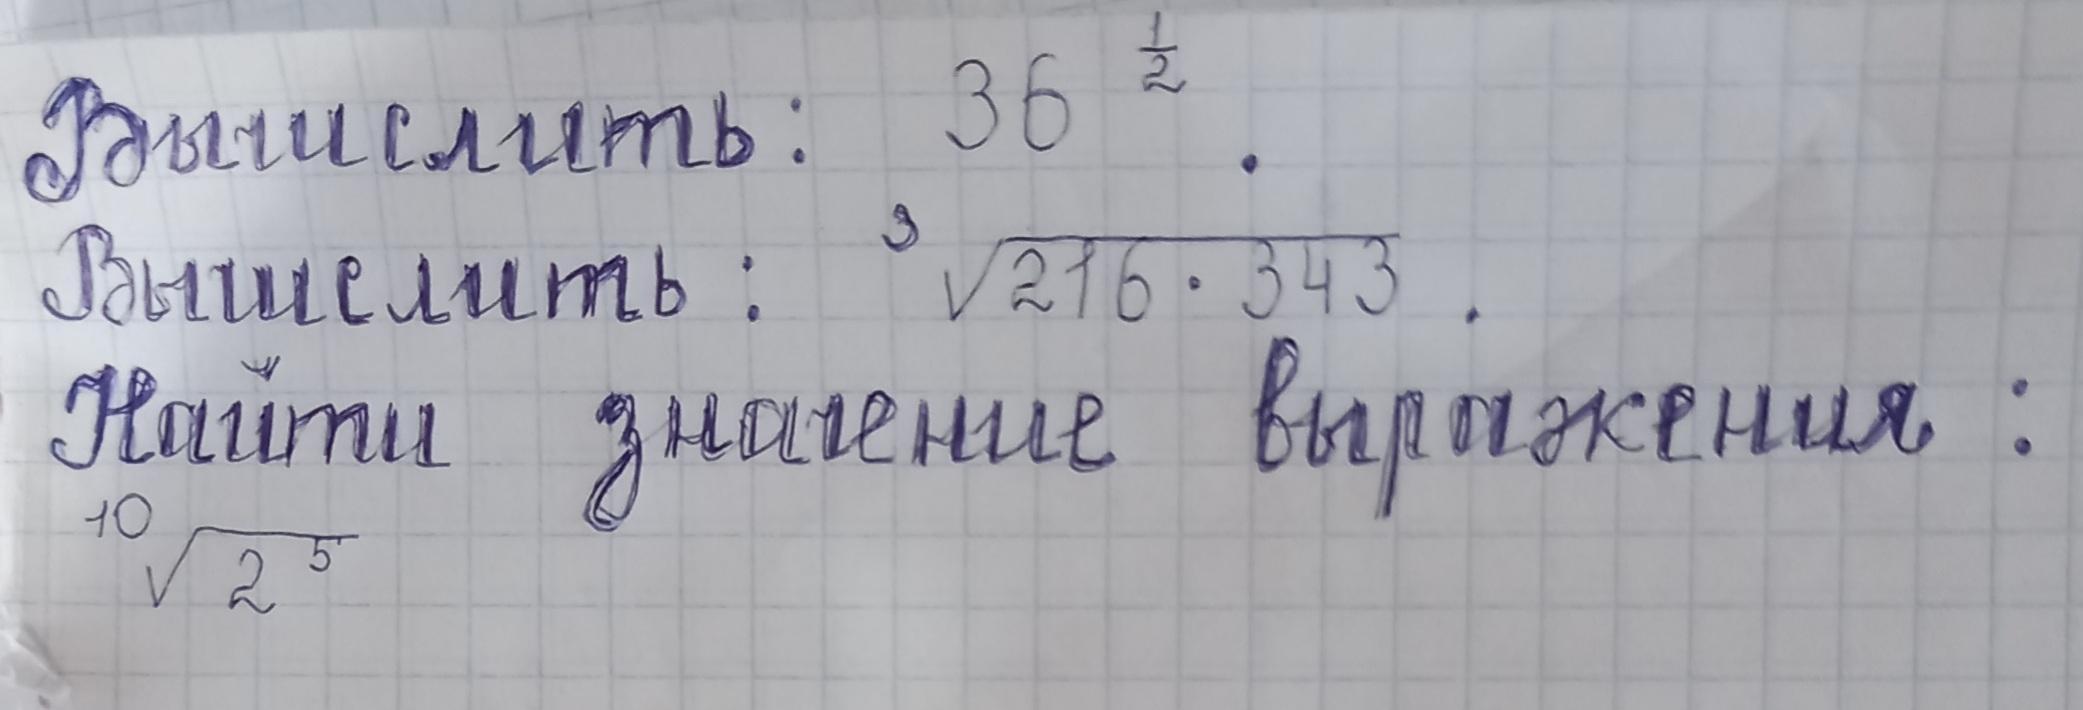 Вычислить: 36^{\frac{1}{2}}.
Вычислить: \sqrt[3]{216 · 343}.
Найти значение выражения:
\sqrt[10]{2^5}